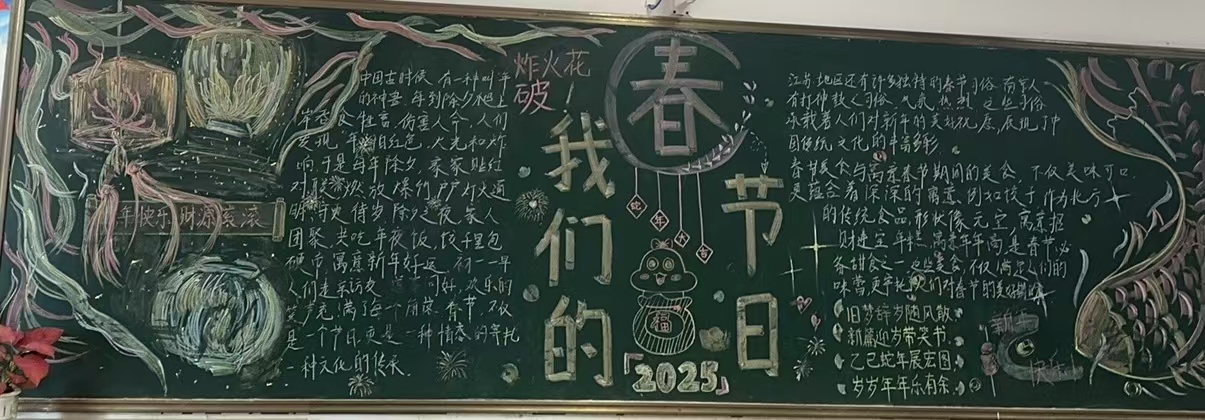 新年快乐 财源滚滚
中国古时候,有一种叫年
的神兽,年到除夕爬上
岸吞食牲畜,伤害人命,人们
发现,年怕红色,火光和炸
响,于是每年除夕,家家贴红
对联,燃放爆竹,户户灯火通
明,守更待岁。除夕之夜,家人
团聚,共吃年夜饭,饺子里包
硬币,寓意新年好运。初一一早
人们走亲访友,
充满每一个角落。春节不仅
是一个节日,更是一种情
一种文化的传承。
炸火花
破
春
我们的
节日
蛇年大吉
福
「2025」
江苏地区还有许多独特的春节习俗,
有打神鼓
承载着人们对新年的美好祝愿,展现了中
国传统文化的丰富多彩
春节美食与寓意春节期间的美食,不仅美味可口,
更蕴含着深深的寓意,例如饺子作为北方
的传统食品,形状像元宝,寓意招
财进宝 年糕,寓意年年高,是春节必
备甜食之一,这些美食不仅满足人们的
味蕾,更寄托人们对春节的美好
旧梦辞岁随风散
新篇迎岁带笑书
乙巳蛇年展宏图
岁岁年年乐有余
快乐